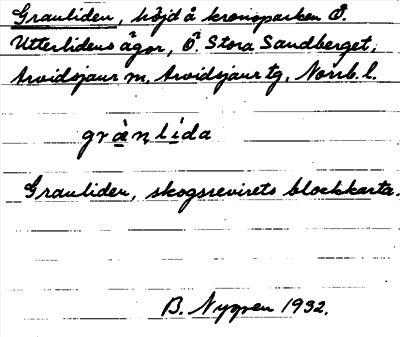 Granliden, höjd å kronoparken Ö.
Utterlidens ägor, Ö. Stora Sandberget,
Arvidsjaur sn, Arvidsjaur tg, Norrb. l.
grànlída
Granliden, skogsrevirets blockkarta.
B. Nygren 1932.